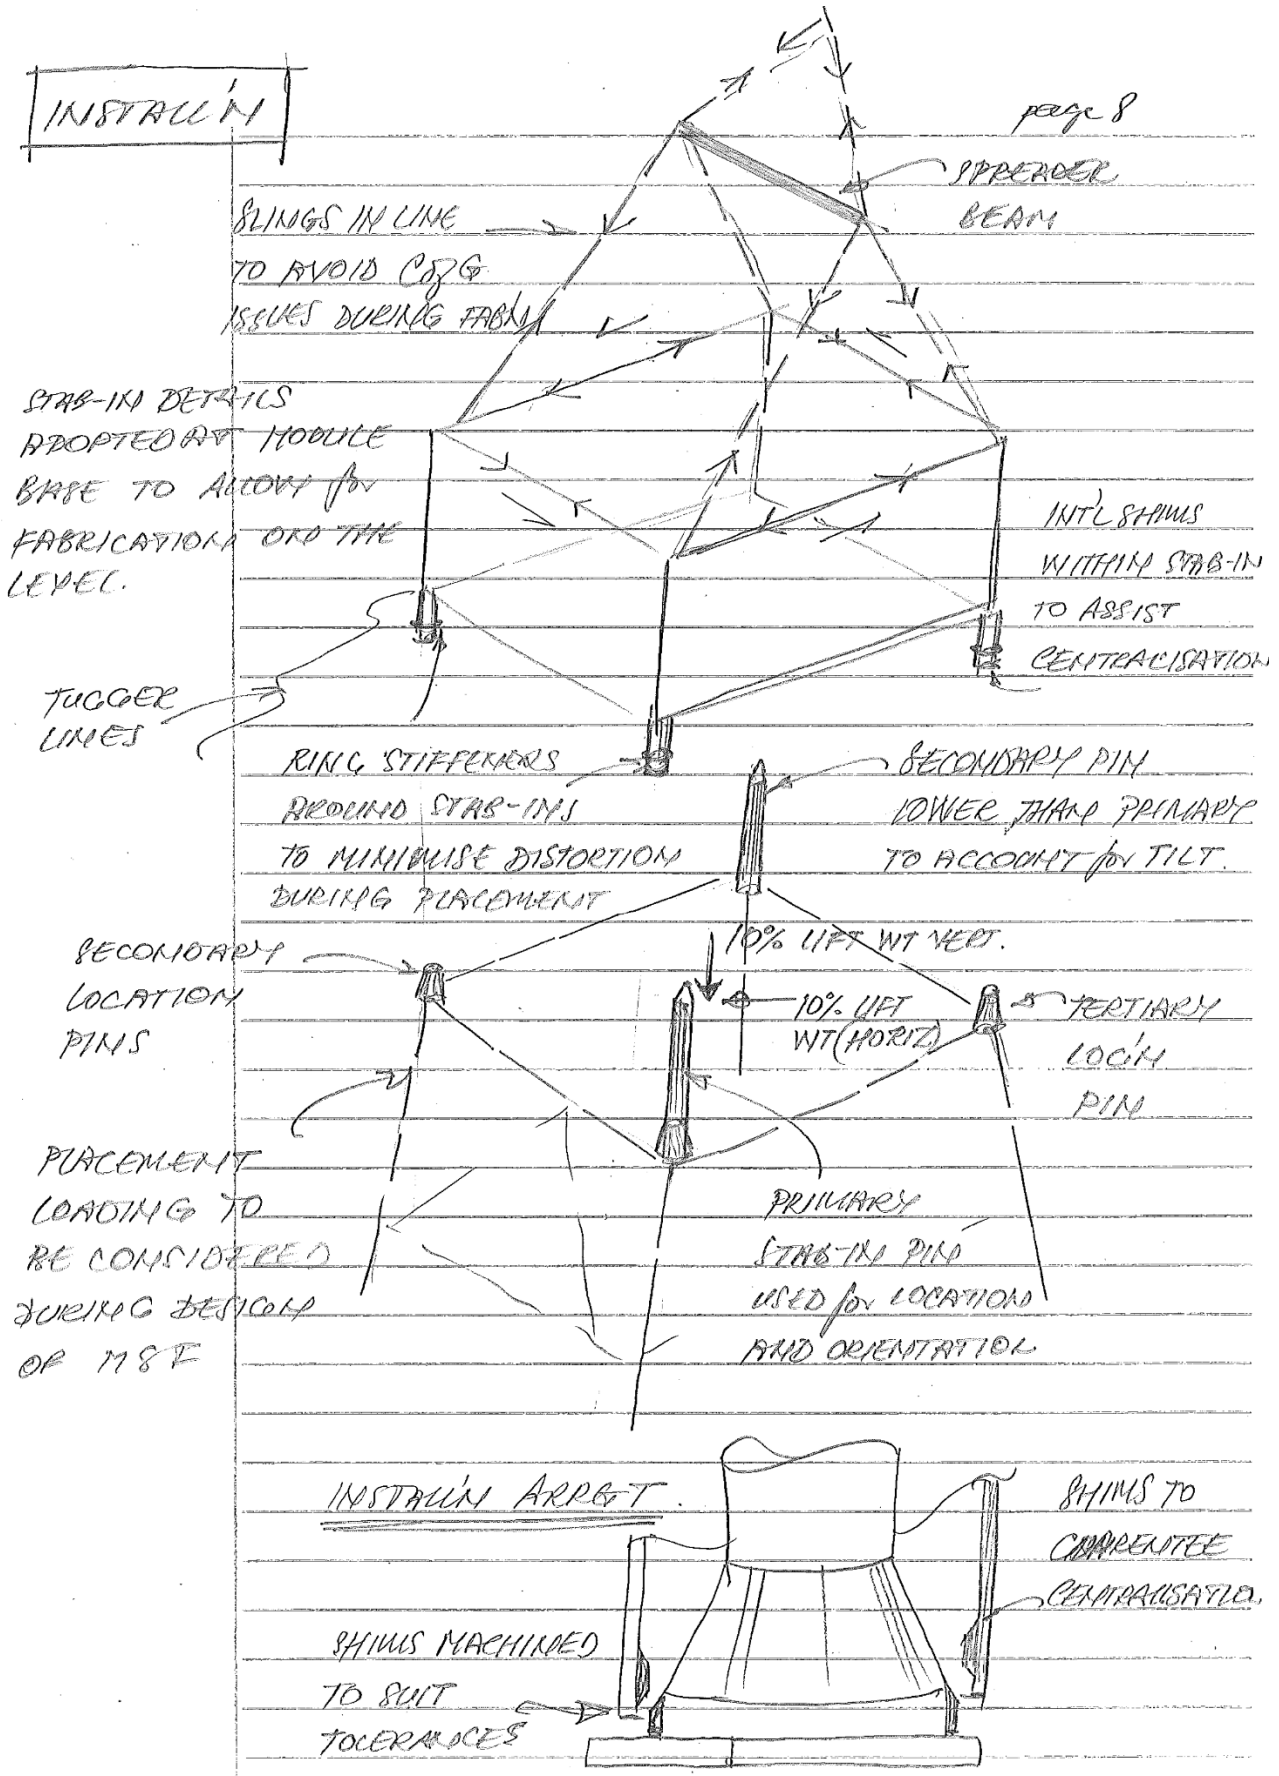 INSTALL'N
page 8
SPREADER
BEAM
SLINGS IN LINE
TO AVOID C of G
ISSUES DURING FAB'N
STAB-IN DETAILS
ADOPTED AT MODULE
BASE TO ALLOW for
FABRICATION ON THE
LEVEL.
INT'L SHIMS
WITHIN STAB-IN
TO ASSIST
CENTRALISATION
TUGGER
LINES
RING STIFFENERS
AROUND STAB-INS
TO MINIMISE DISTORTION
DURING PLACEMENT
SECONDARY PIN
LOWER THAN PRIMARY
TO ACCOUNT for TILT.
SECONDARY
LOCATION
PINS
10% LIFT WT VERT.
10% LIFT
WT (HORIZ)
TERTIARY
LOC'N
PIN
PLACEMENT
LOADING TO
BE CONSIDERED
DURING DESIGN
OF MSF
PRIMARY
STAB-IN PIN
USED for LOCATION
AND ORIENTATION.
INSTALL'N ARRGT.
SHIMS TO
CENTRALISATION
SHIMS MACHINED
TO SUIT
TOLERANCES